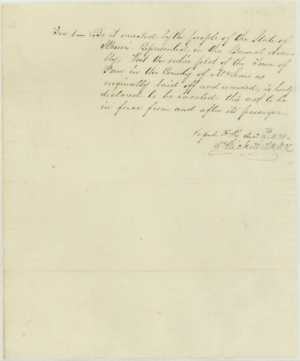 Sec 1 — Be it enacted by the people of the State of
Illinois Represented in the General Assem-
bly, That the entire plat of the Town of
in the County of McLean as
originally laid off and recorded, is hereby
declared to be vacated this act to be
in force from and after its passage.